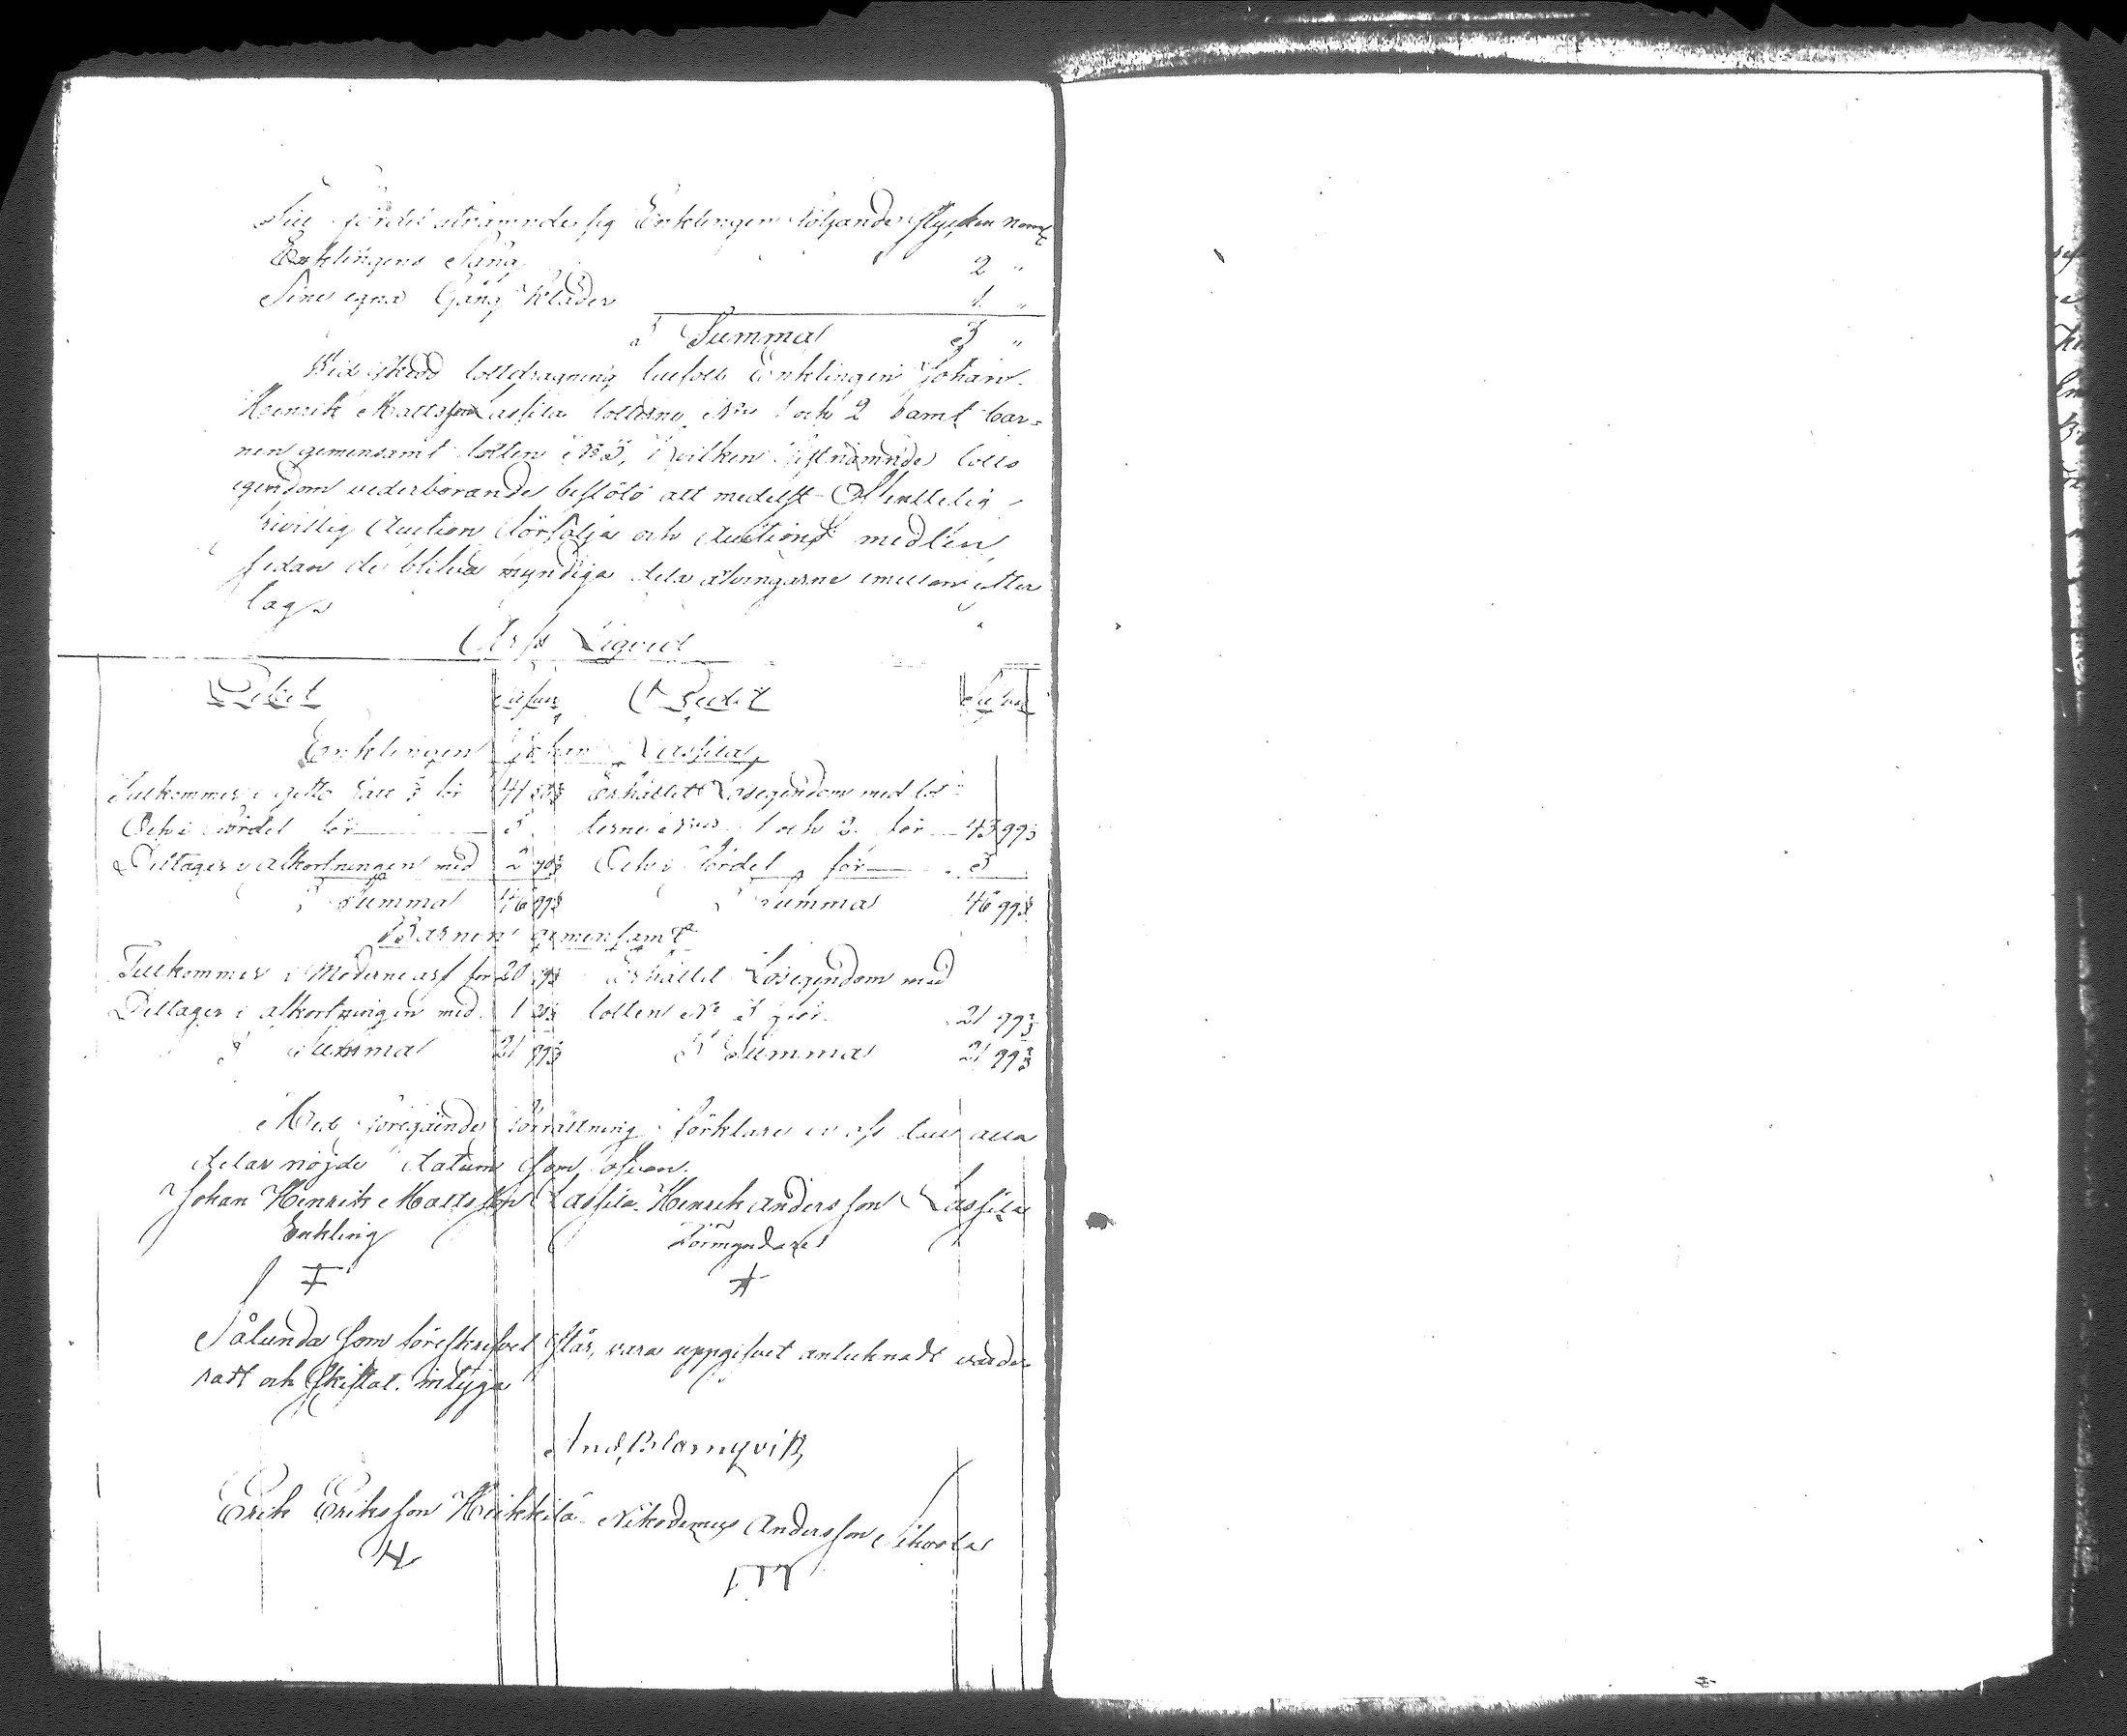 Till fördel utnämnde sig Enklingen följande stycken neml
Enklingens Säng 2 "
Sine egna Gång Kläder 1 "
S Summa 3 "
Vid skedd lottdragning tillföll Enklingen Johan
Henrik Mattsson Lassila lotterne N:ris 1 och 2 samt bar-
nen gemensamt lotten N:o 3, hvilken sistnämnde lotts
egendom vederbörande beslöto att medelst Offentelig
frivillig Auction försälja och Auctions medlen,
sedan de blifva myndiga dela arfvingarne emellan efter
lag.
Arfs Liqvid
Debet Silfver Credit Silfver
Enklingen Johan Lassila
Tillkommer i gifto rätt för 41 Erhållit Lösegendom med lot-
Och i fördel för 3 terne N:ris 1 och 2 för 43 99
Deltager i afkortningen med 2 Och i fördel för 3
S Summa 46 99 S Summa 46 99
Barnen gemensamt
Tillkommer i Möderne arf för 20 Erhållit Lösegendom med
Deltager i afkortningen med 1 lotten N:o 3 för 21 99
S Summa 21 99 S Summa 21 99
Med föregående förrättning förklare vi oss till alla
delar nöjde datum som ofvan.
Johan Henrik Mattsson Lassila Henrik Andersson Lassila
Enkling Förmyndare
Sålunda som föreskrifvet står, vara uppgifvet anteknadt värde-
radt och skiftat intyga
And. Blomqvist,
Erik Eriksson Heikkilä Nikodemus Andersson